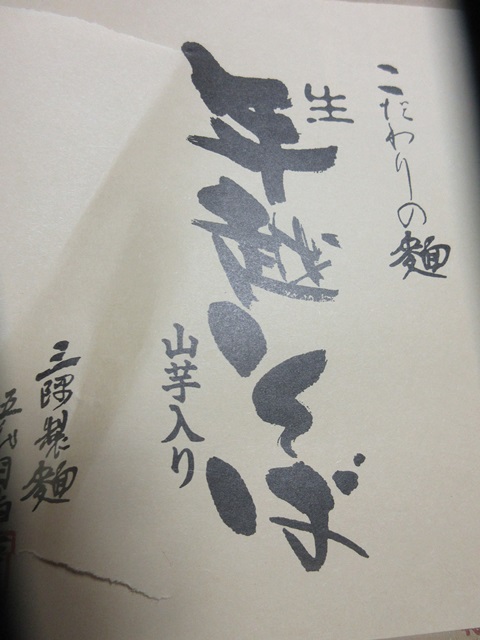 こだわりの麺
生
年越しそば
山芋入り
三隅製麺
五代目